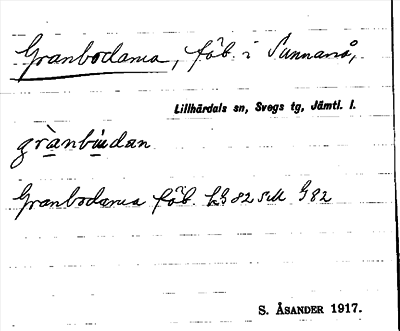 Granbodarna, fäb. i Sunnanå,
Lillhärdals sn, Svegs tg, Jämtl. l.
grànbùdan
Granbodarna fäb. 82 G 82
S. ÅSANDER 1917.